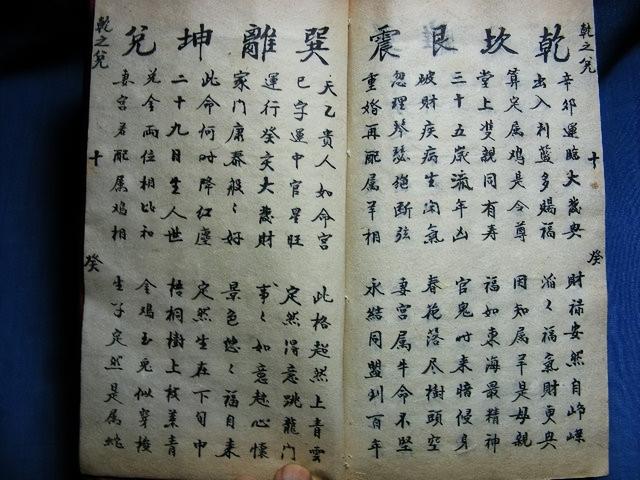 乾之兌
十
癸
乾 坎 艮 震
辛卯運臨大歲與 財祿安然自崢嶸
出入利藍多賜福 滔々福氣財更與
算定属鸡是令尊 因知属羊是母親
堂上雙親同有寿 福如東海最精神
三十五歲流年凶 官鬼时来暗侵身
破財疾病生闲氣 春花落尽樹頭空
忽理琴瑟絕断弦 妻宮属牛命不堅
重婚再配属羊相 永結同盟到百年
巽 離 坤 兌
天乙貴人如命宮 此格超然上青雲
巳字運中官星旺 定然得意跳龍门
運行癸亥大歲財 事々如意趁心懷
家门康泰般々好 景色悠々福自来
此命何时降红塵 定然生在下旬中
二十九日生人世 梧桐樹上枝葉青
兌金両位相比和 金鸡玉兔似穿梭
妻宮若配属鸡相 生子定然是属蛇
乾之兌
十
癸